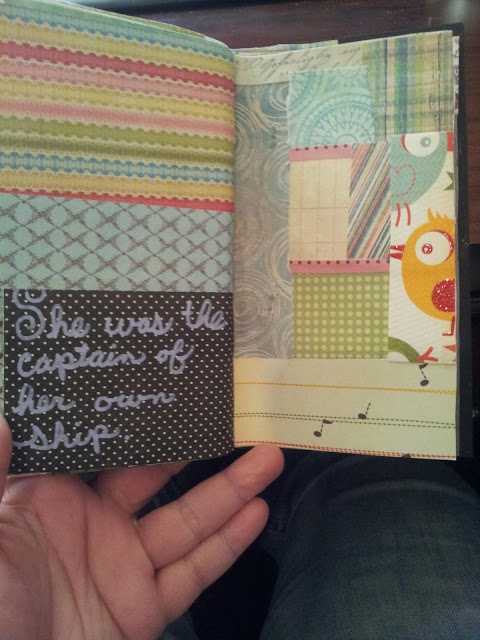 She was the
captain of
her own
ship.